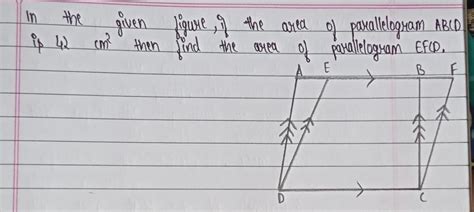 In the given figure, if the area of parallelogram ABCD
is 42 cm² then find the area of parallelogram EFCD.
A E B F
D C